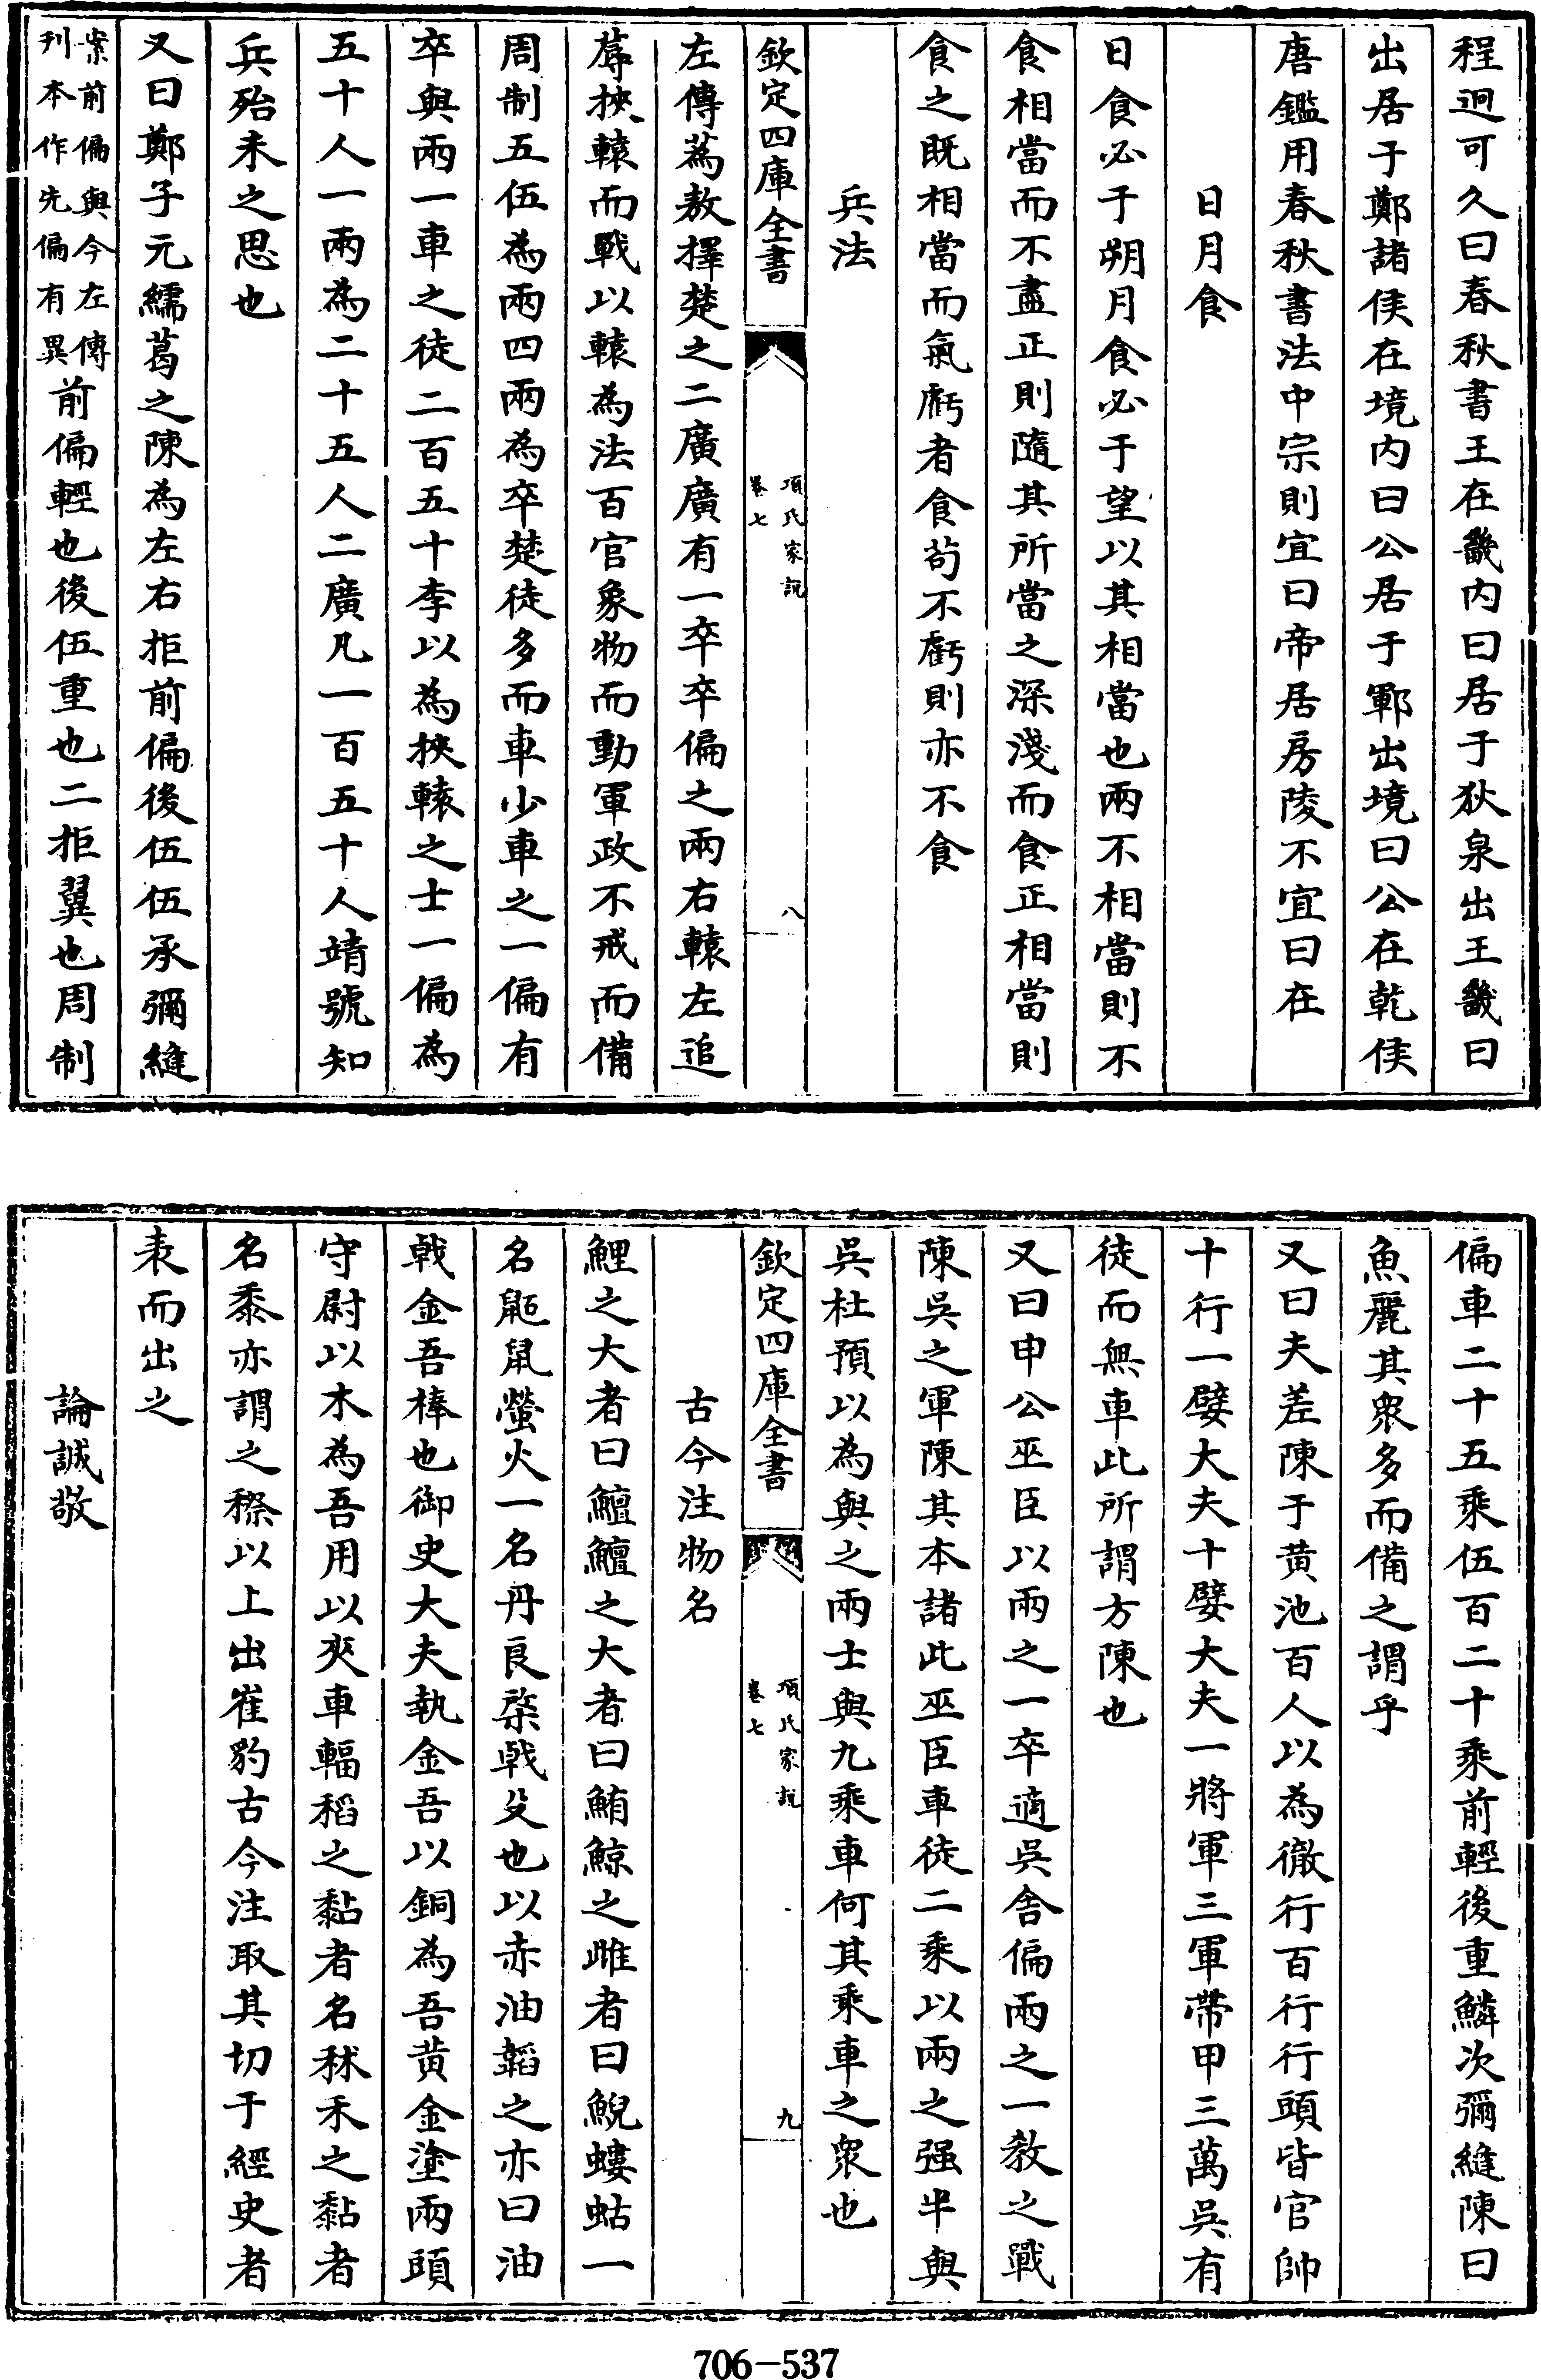 程迥可久曰春秋書王在畿内曰居于狄泉出王畿曰
出居于鄭諸侯在境内曰公居于鄆出境曰公在乾侯
唐鑑用春秋書法中宗則宜曰帝居房陵不宜曰在
日月食
日食必于朔月食必于望以其相當也兩不相當則不
食相當而不盡正則隨其所當之深淺而食正相當則
食之既相當而氣虧者食茍不虧則亦不食
兵法
欽定四庫全書
項氏家說
卷七
八
左傳蒍敖擇楚之二廣廣有一卒卒偏之兩右轅左追
蓐挾轅而戰以轅為法百官象物而動軍政不戒而備
周制五伍為兩四兩為卒楚徒多而車少車之一偏有
卒與兩一車之徒二百五十李以為挾轅之士一偏為
五十人一兩為二十五人二廣凡一百五十人靖號知
兵殆未之思也
又曰鄭子元繻葛之陳為左右拒前偏後伍伍承彌縫
案前偏與今左傳
刋本作先偏有異
前偏輕也後伍重也二拒翼也周制
偏車二十五乘伍百二十乘前輕後重鱗次彌縫陳曰
魚麗其衆多而備之謂乎
又曰夫差陳于黄池百人以為徹行百行行頭皆官帥
十行一嬖大夫十嬖大夫一將軍三軍帶甲三萬吳有
徒而無車此所謂方陳也
又曰申公巫臣以兩之一卒適吳舍偏兩之一教之戰
陳吳之軍陳其本諸此巫臣車徒二乘以兩之强半與
吳杜預以為與之兩士與九乘車何其乘車之衆也
欽定四庫全書
項氏家說
卷七
九
古今注物名
鯉之大者曰鱣鱣之大者曰鮪鯨之雌者曰鯢螻蛄一
名鼫鼠螢火一名丹良棨戟殳也以赤油韜之亦曰油
戟金吾棒也御史大夫執金吾以銅為吾黄金塗兩頭
守尉以木為吾用以夾車輻稻之黏者名秫禾之黏者
名黍亦謂之穄以上出崔豹古今注取其切于經史者
表而出之
論誠敬
706-537